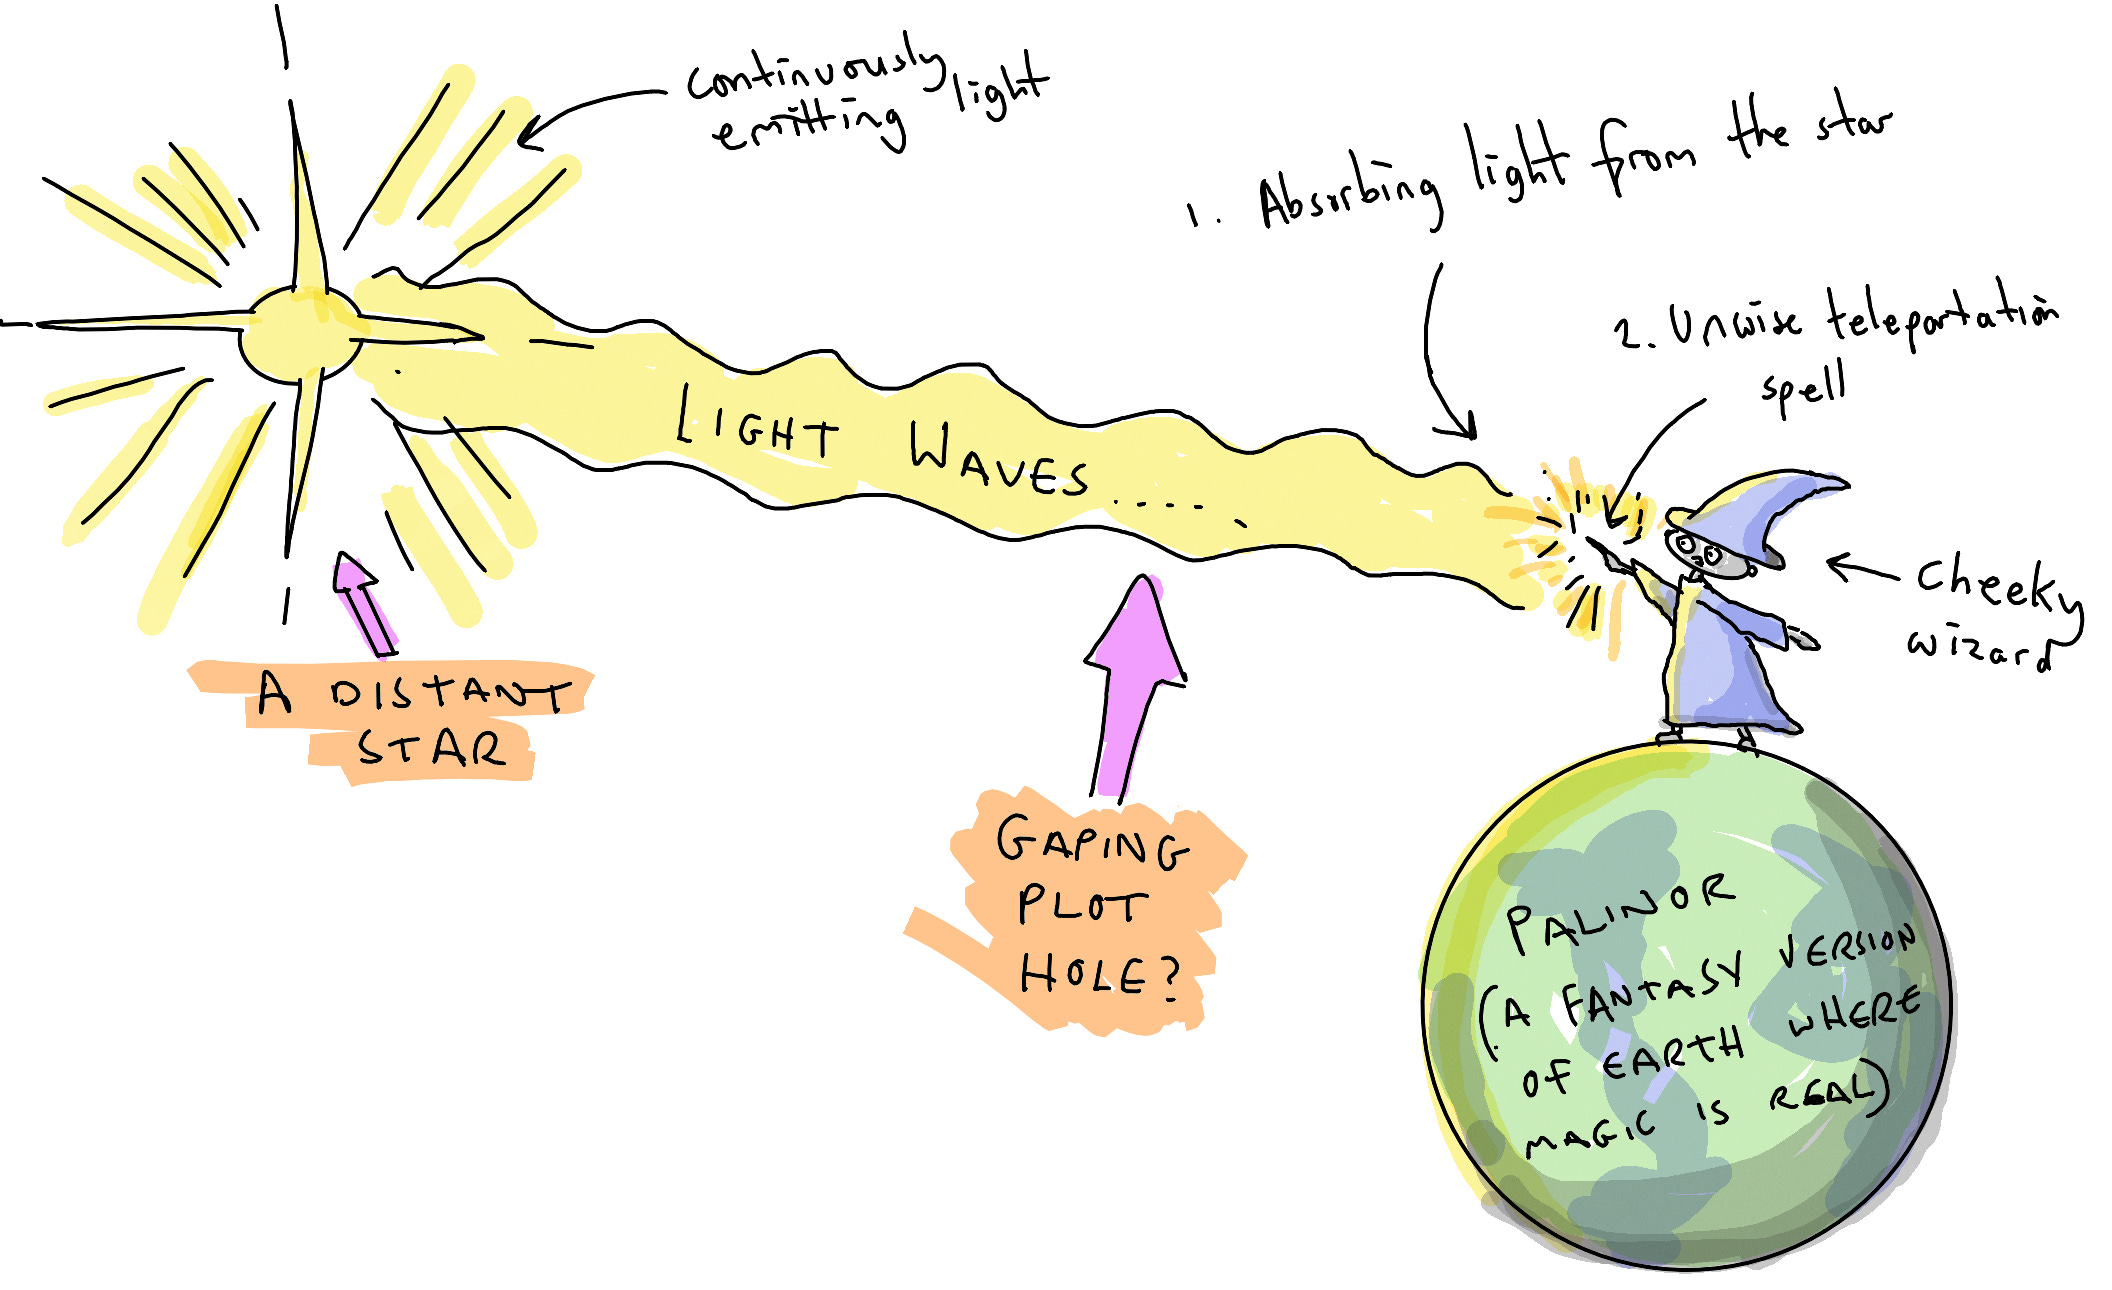 continuously
emitting light
1. Absorbing light from the star
2. Unwise teleportation
spell
LIGHT WAVES.....
Cheeky
wizard
A DISTANT
STAR
GAPING
PLOT
HOLE?
PALINOR
(A FANTASY VERSION
OF EARTH WHERE
MAGIC IS REAL)